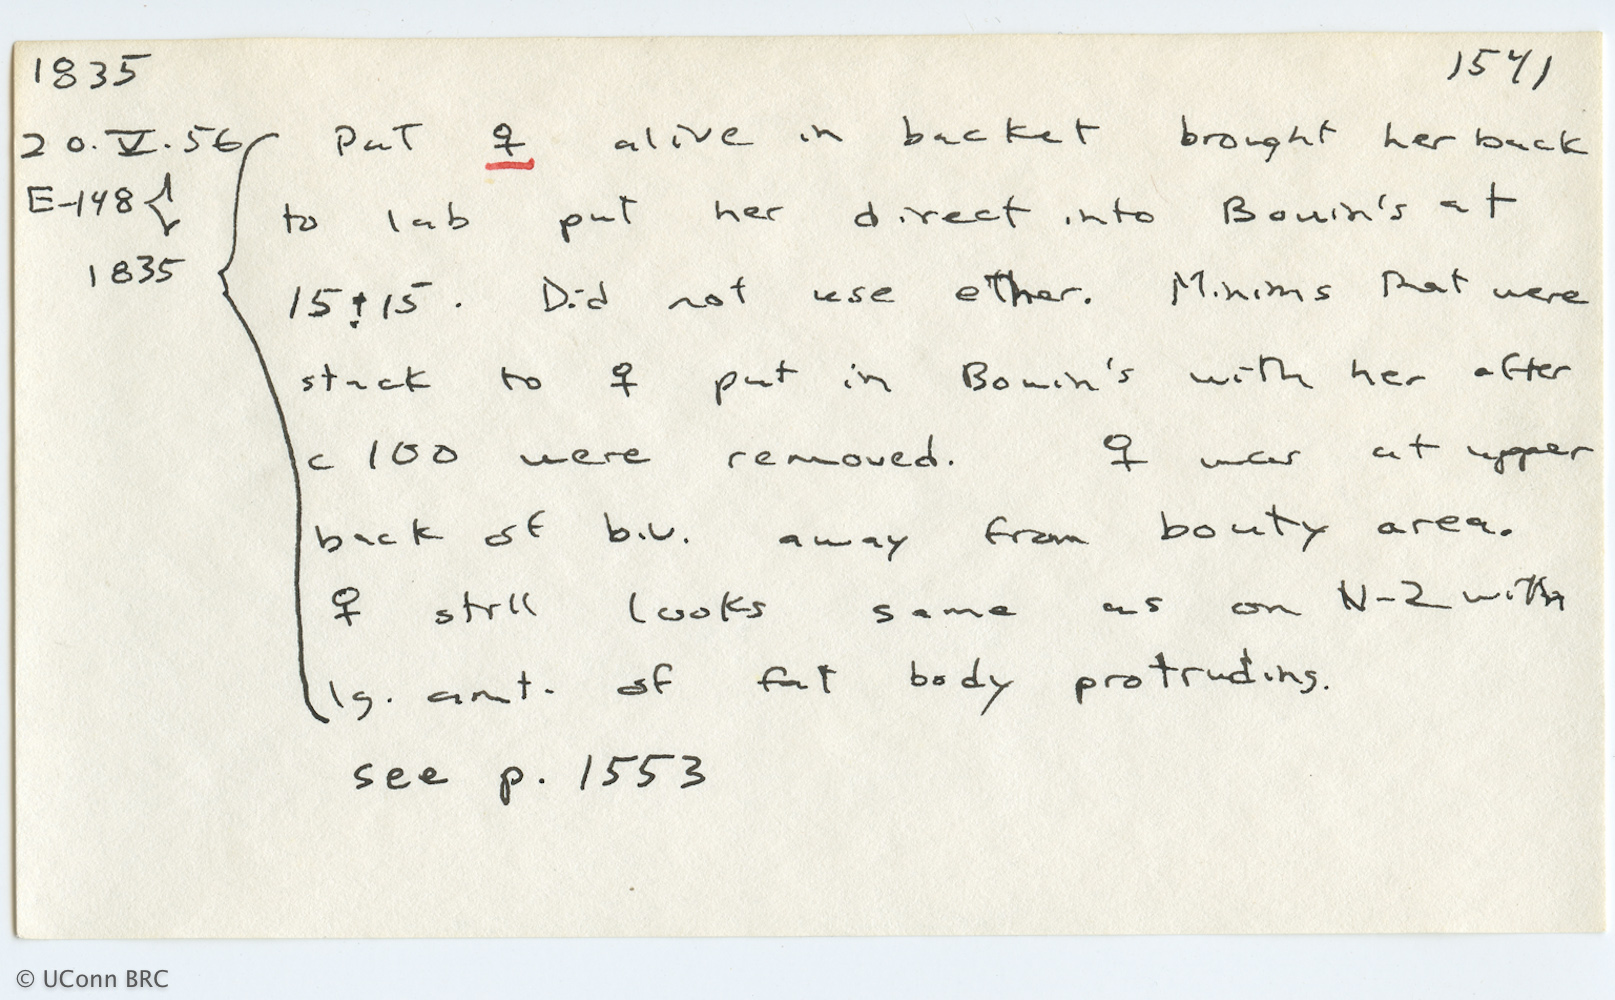 1835 1541
20.V.56 Put ♀ alive in bucket brought her back
E-148 to lab put her direct into Bouin's at
1835 15:15. Did not use ether. Minims that were
stuck to ♀ put in Bouin's with her after
c 100 were removed. ♀ was at upper
back of biv. away from booty area.
♀ still looks same as on N-2 with
lg. amt. of fat body protruding.
see p. 1553
© UConn BRC